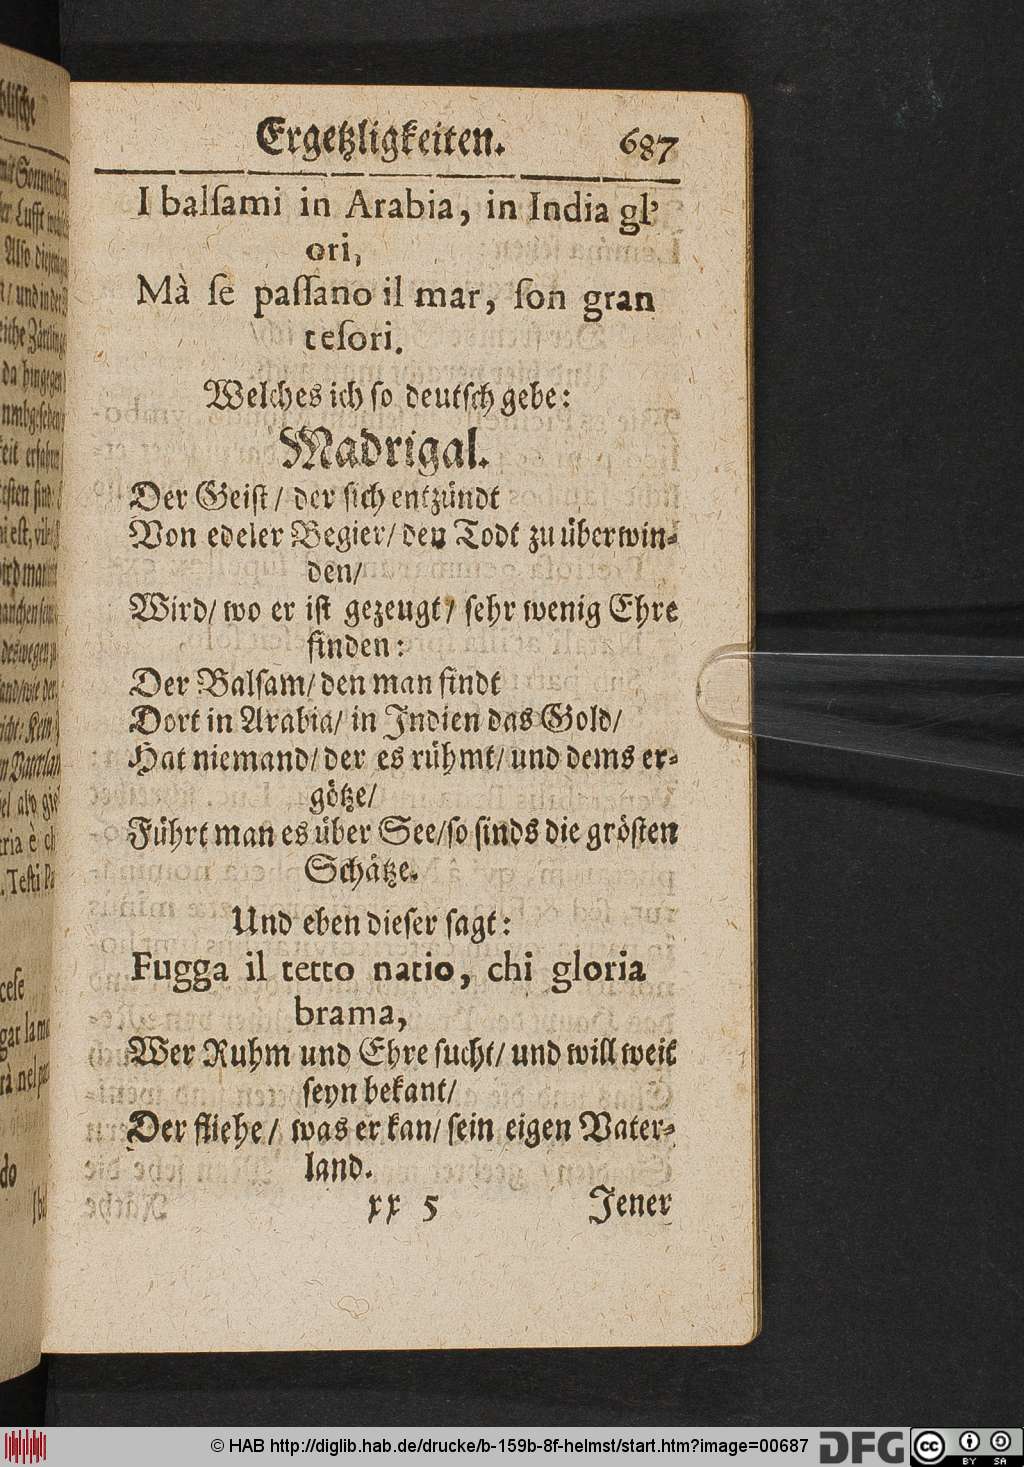 Ergetzligkeiten. 687
I balſami in Arabia, in India gl'
ori,
Mà ſe paſſano il mar, ſon gran
teſori.
Welches ich ſo deutſch gebe:
Madrigal.
Der Geiſt / der ſich entzündt
Von edeler Begier/ den Todt zu überwin⸗
den/
Wird/ wo er iſt gezeugt / ſehr wenig Ehre
finden:
Der Balſam/ den man findt
Dort in Arabia/ in Indien das Gold/
Hat niemand/ der es rühmt/ und dems er⸗
götze/
Führt man es über See/ ſo ſinds die gröſten
Schätze.
Und eben dieſer ſagt:
Fugga il tetto natio, chi gloria
brama,
Wer Ruhm und Ehre ſucht/ und will weit
ſeyn bekant/
Der fliehe / was er kan/ ſein eigen Vater⸗
land.
xx 5 Jener
© HAB http://diglib.hab.de/drucke/b-159b-8f-helmst/start.htm?image=00687
DFG
cc BY SA